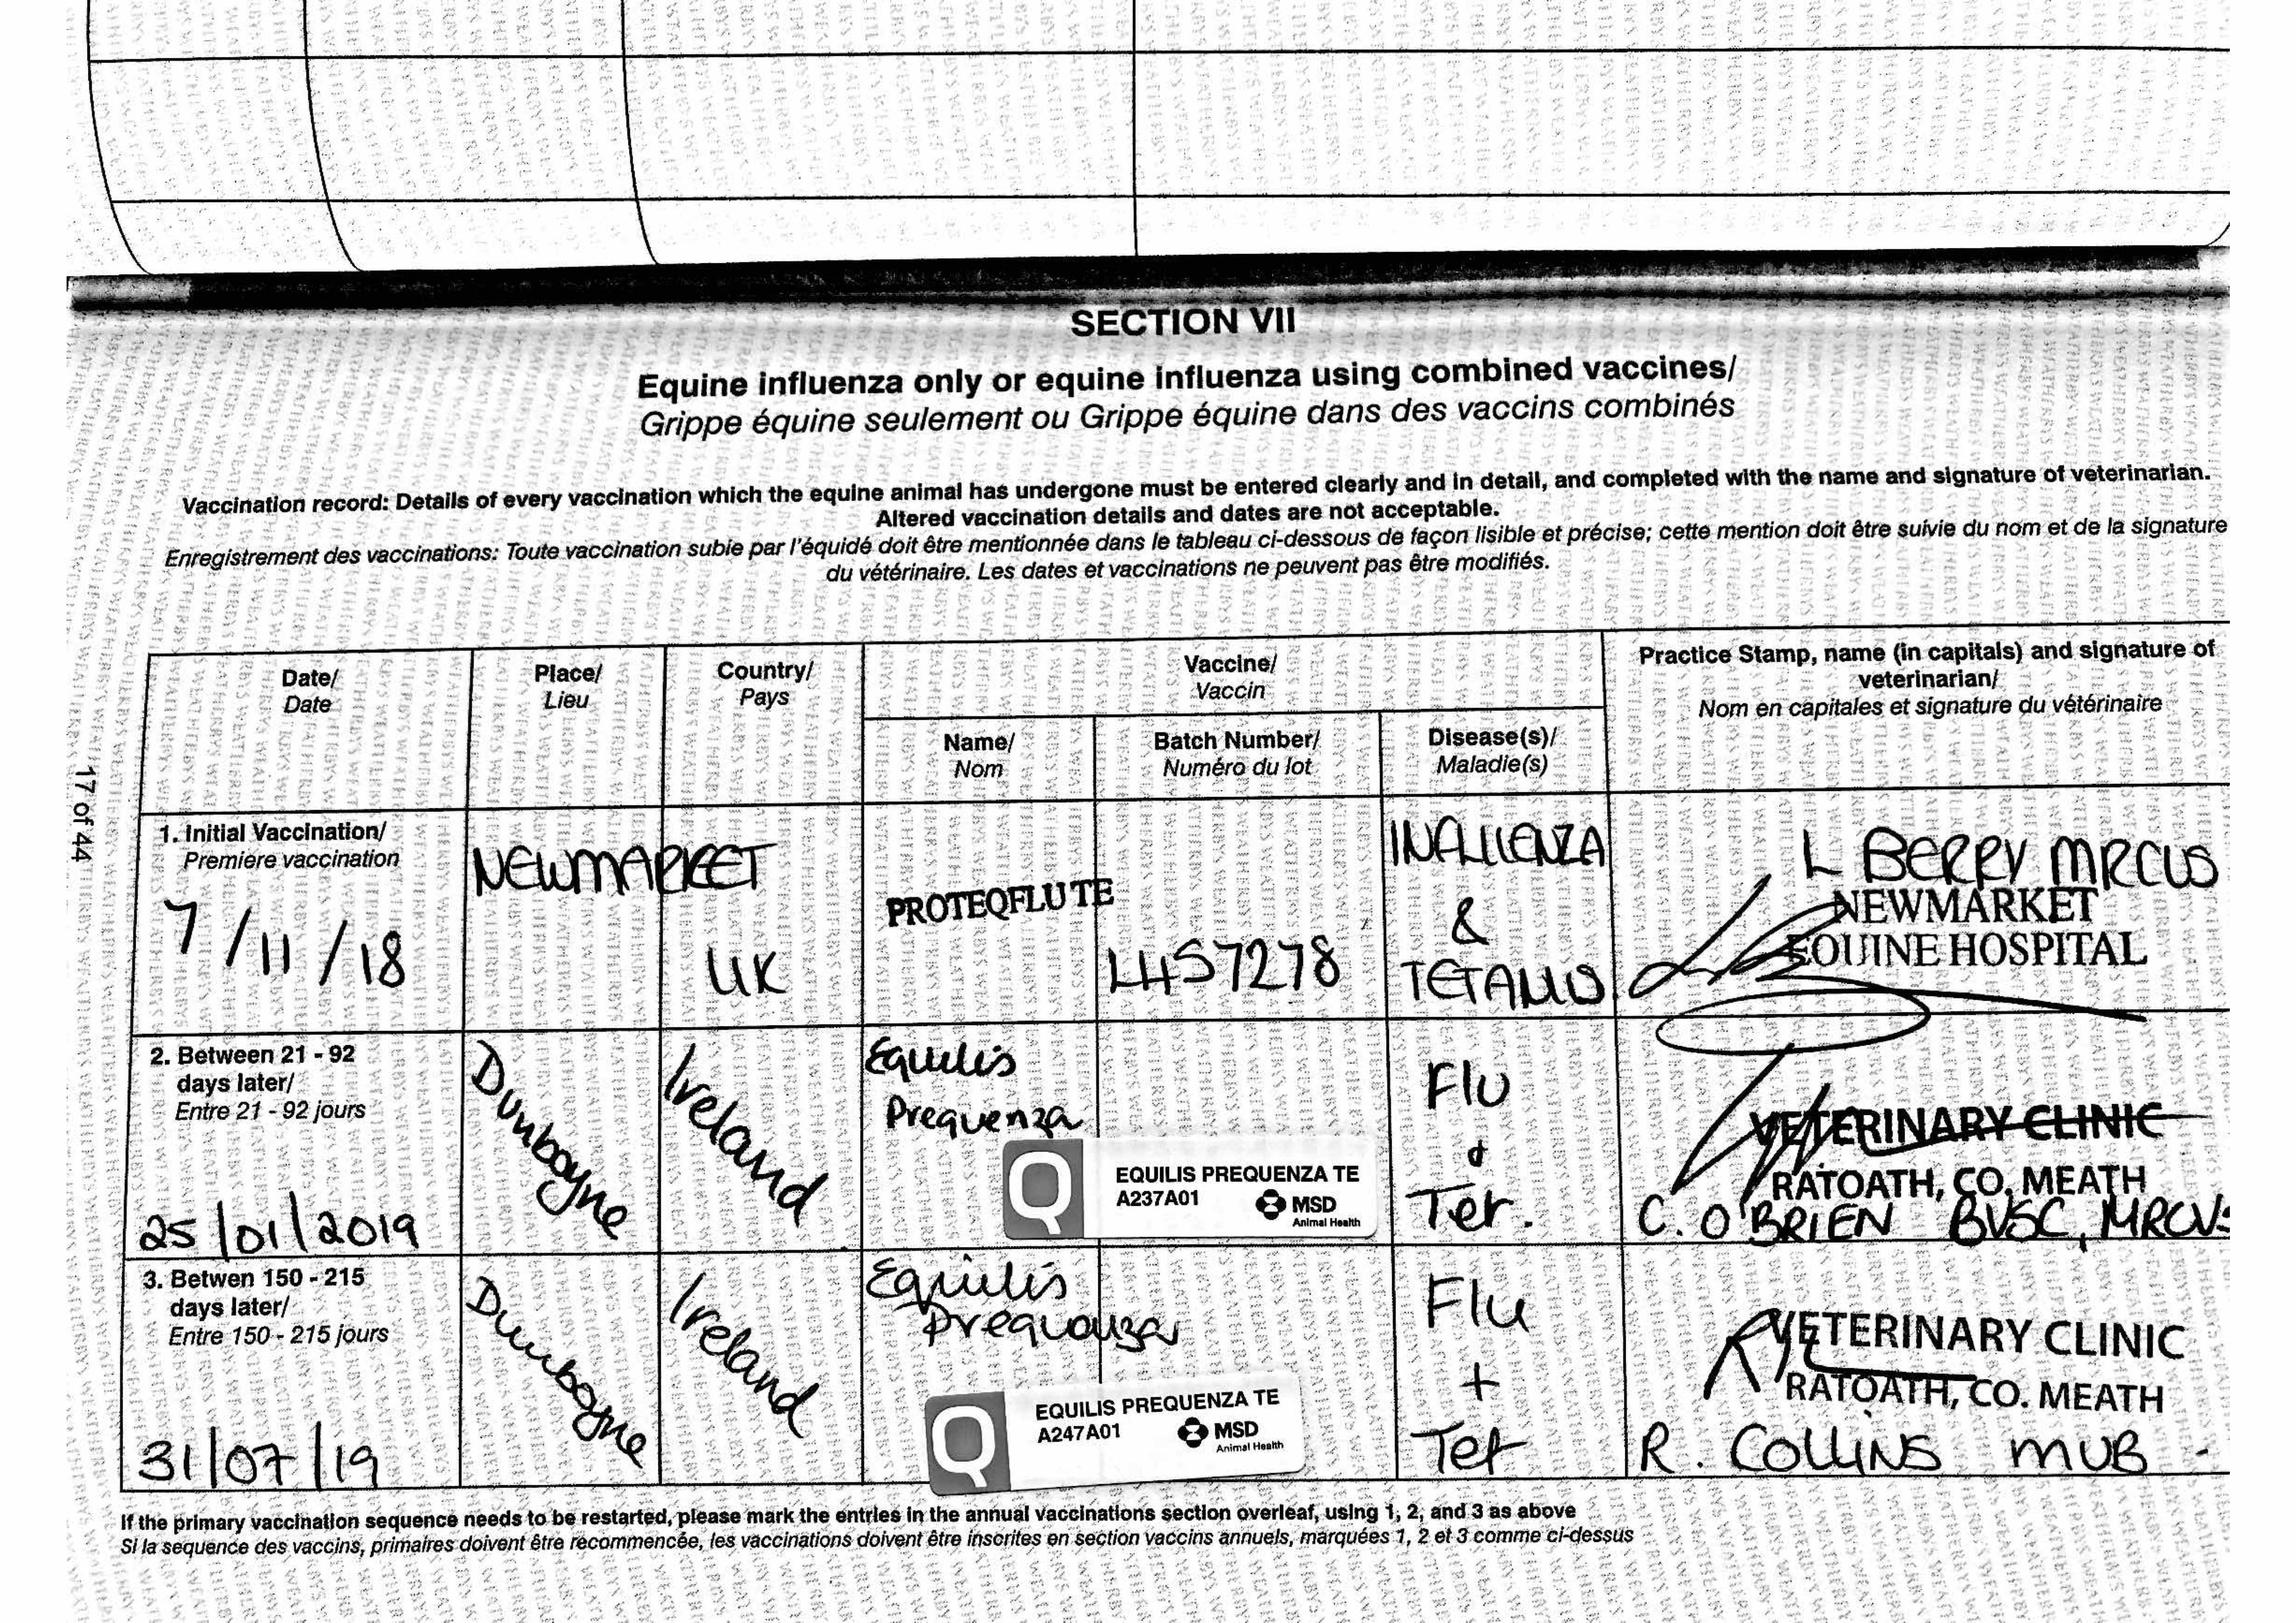 SECTION VII
Equine influenza only or equine influenza using combined vaccines/
Grippe équine seulement ou Grippe équine dans des vaccins combinés
Vaccination record: Details of every vaccination which the equine animal has undergone must be entered clearly and in detail, and completed with the name and signature of veterinarian.
Altered vaccination details and dates are not acceptable.
Enregistrement des vaccinations: Toute vaccination subie par l'équidé doit être mentionnée dans le tableau ci-dessous de façon lisible et précise; cette mention doit être suivie du nom et de la signature
du vétérinaire. Les dates et vaccinations ne peuvent pas être modifiés.
Date/
Date
Place/
Lieu
Country/
Pays
Vaccine/
Vaccin
Practice Stamp, name (in capitals) and signature of
veterinarian/
Nom en capitales et signature du vétérinaire
Name/
Nom
Batch Number/
Numéro du lot
Disease(s)/
Maladie(s)
17 of 44
1. Initial Vaccination/
Premiere vaccination
7/11/18
NEWMARKET
UK
PROTEQFLU TE
L457278
INFLUENZA
&
TETANUS
L BERRY MRCVS
NEWMARKET
EQUINE HOSPITAL
2. Between 21 - 92
days later/
Entre 21 - 92 jours
25/01/2019
Dunboyne
Ireland
Equilis
Prequenza
EQUILIS PREQUENZA TE
A237A01
MSD
Animal Health
Flu
&
Tet.
VETERINARY CLINIC
RATOATH, CO. MEATH
C. O'BRIEN BVSC, MRCVS
3. Betwen 150 - 215
days later/
Entre 150 - 215 jours
31/07/19
Dunboyne
Ireland
Equilis
Prequenza
EQUILIS PREQUENZA TE
A247A01
MSD
Animal Health
Flu
+
Tet
VETERINARY CLINIC
RATOATH, CO. MEATH
R. COLLINS MVB
If the primary vaccination sequence needs to be restarted, please mark the entries in the annual vaccinations section overleaf, using 1, 2, and 3 as above
Si la sequence des vaccins, primaires doivent être recommencée, les vaccinations doivent être inscrites en section vaccins annuels, marquées 1, 2 et 3 comme ci-dessus